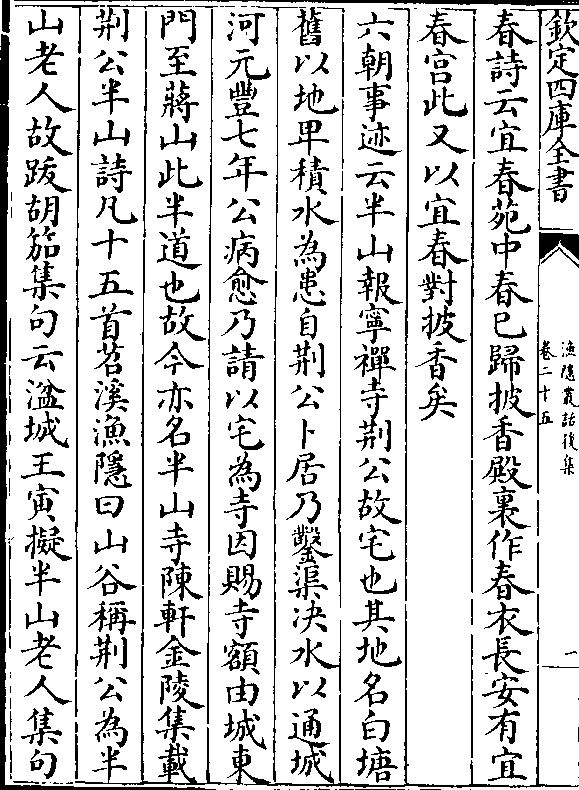 欽定四庫全書
漁隱叢話後集
卷二十五
一
春詩云宜春苑中春已歸披香殿裏作春衣長安有宜
春宫此又以宜春對披香矣
六朝事迹云半山報寧禪寺荆公故宅也其地名白塘
舊以地卑積水為患自荆公卜居乃鑿渠决水以通城
河元豐七年公病愈乃請以宅為寺因賜寺額由城東
門至蔣山此半道也故今亦名半山寺陳軒金陵集載
荆公半山詩凡十五首苕溪漁隱曰山谷稱荆公為半
山老人故跋胡笳集句云湓城王寅擬半山老人集句